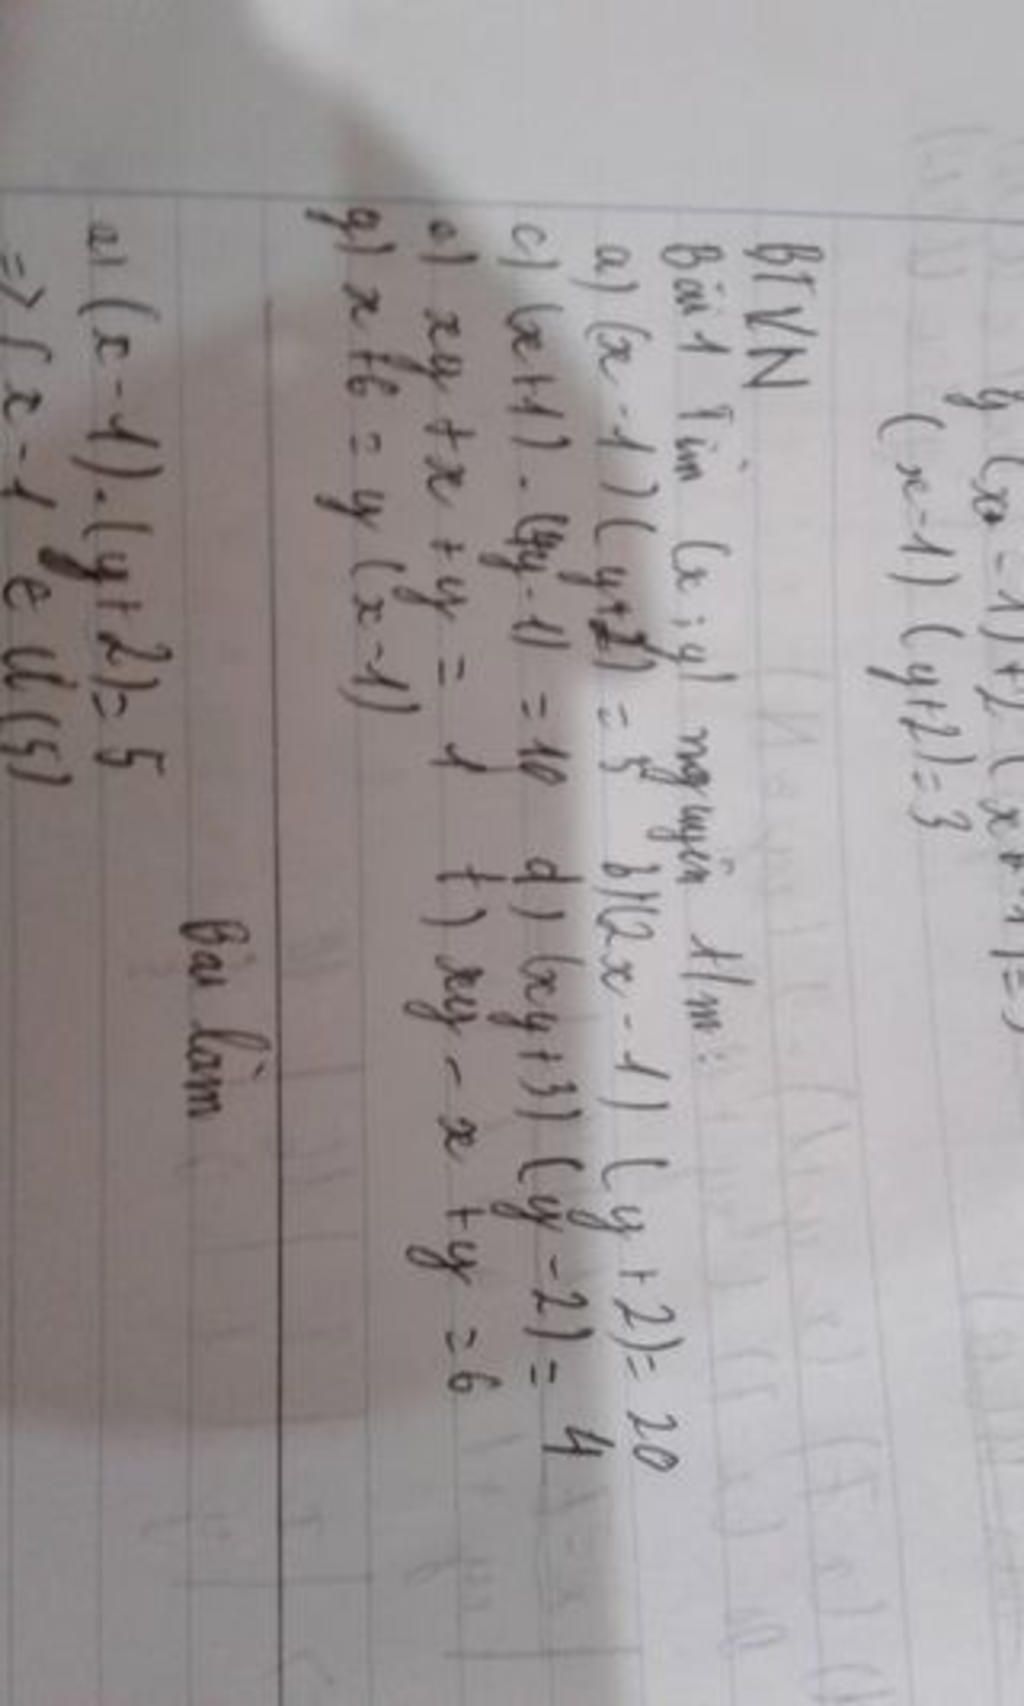 y (x-1)+2 (x-1)=
(x-1) (y+2)=3
BTVN
Bài 1 Tìm (x;y) nguyên t/m:
a) (x-1) (y+2) = 5 b) (2x-1) (y+2)= 20
c) (x+1). (y-1) = 10 d) (xy+3) (y-2) = 4
e) xy+x+y = 1 f) xy-x+y = 6
g) x+6 = y (x-1)
Bài làm
a) (x-1).(y+2)= 5
=> { x-1 e Ư(5)